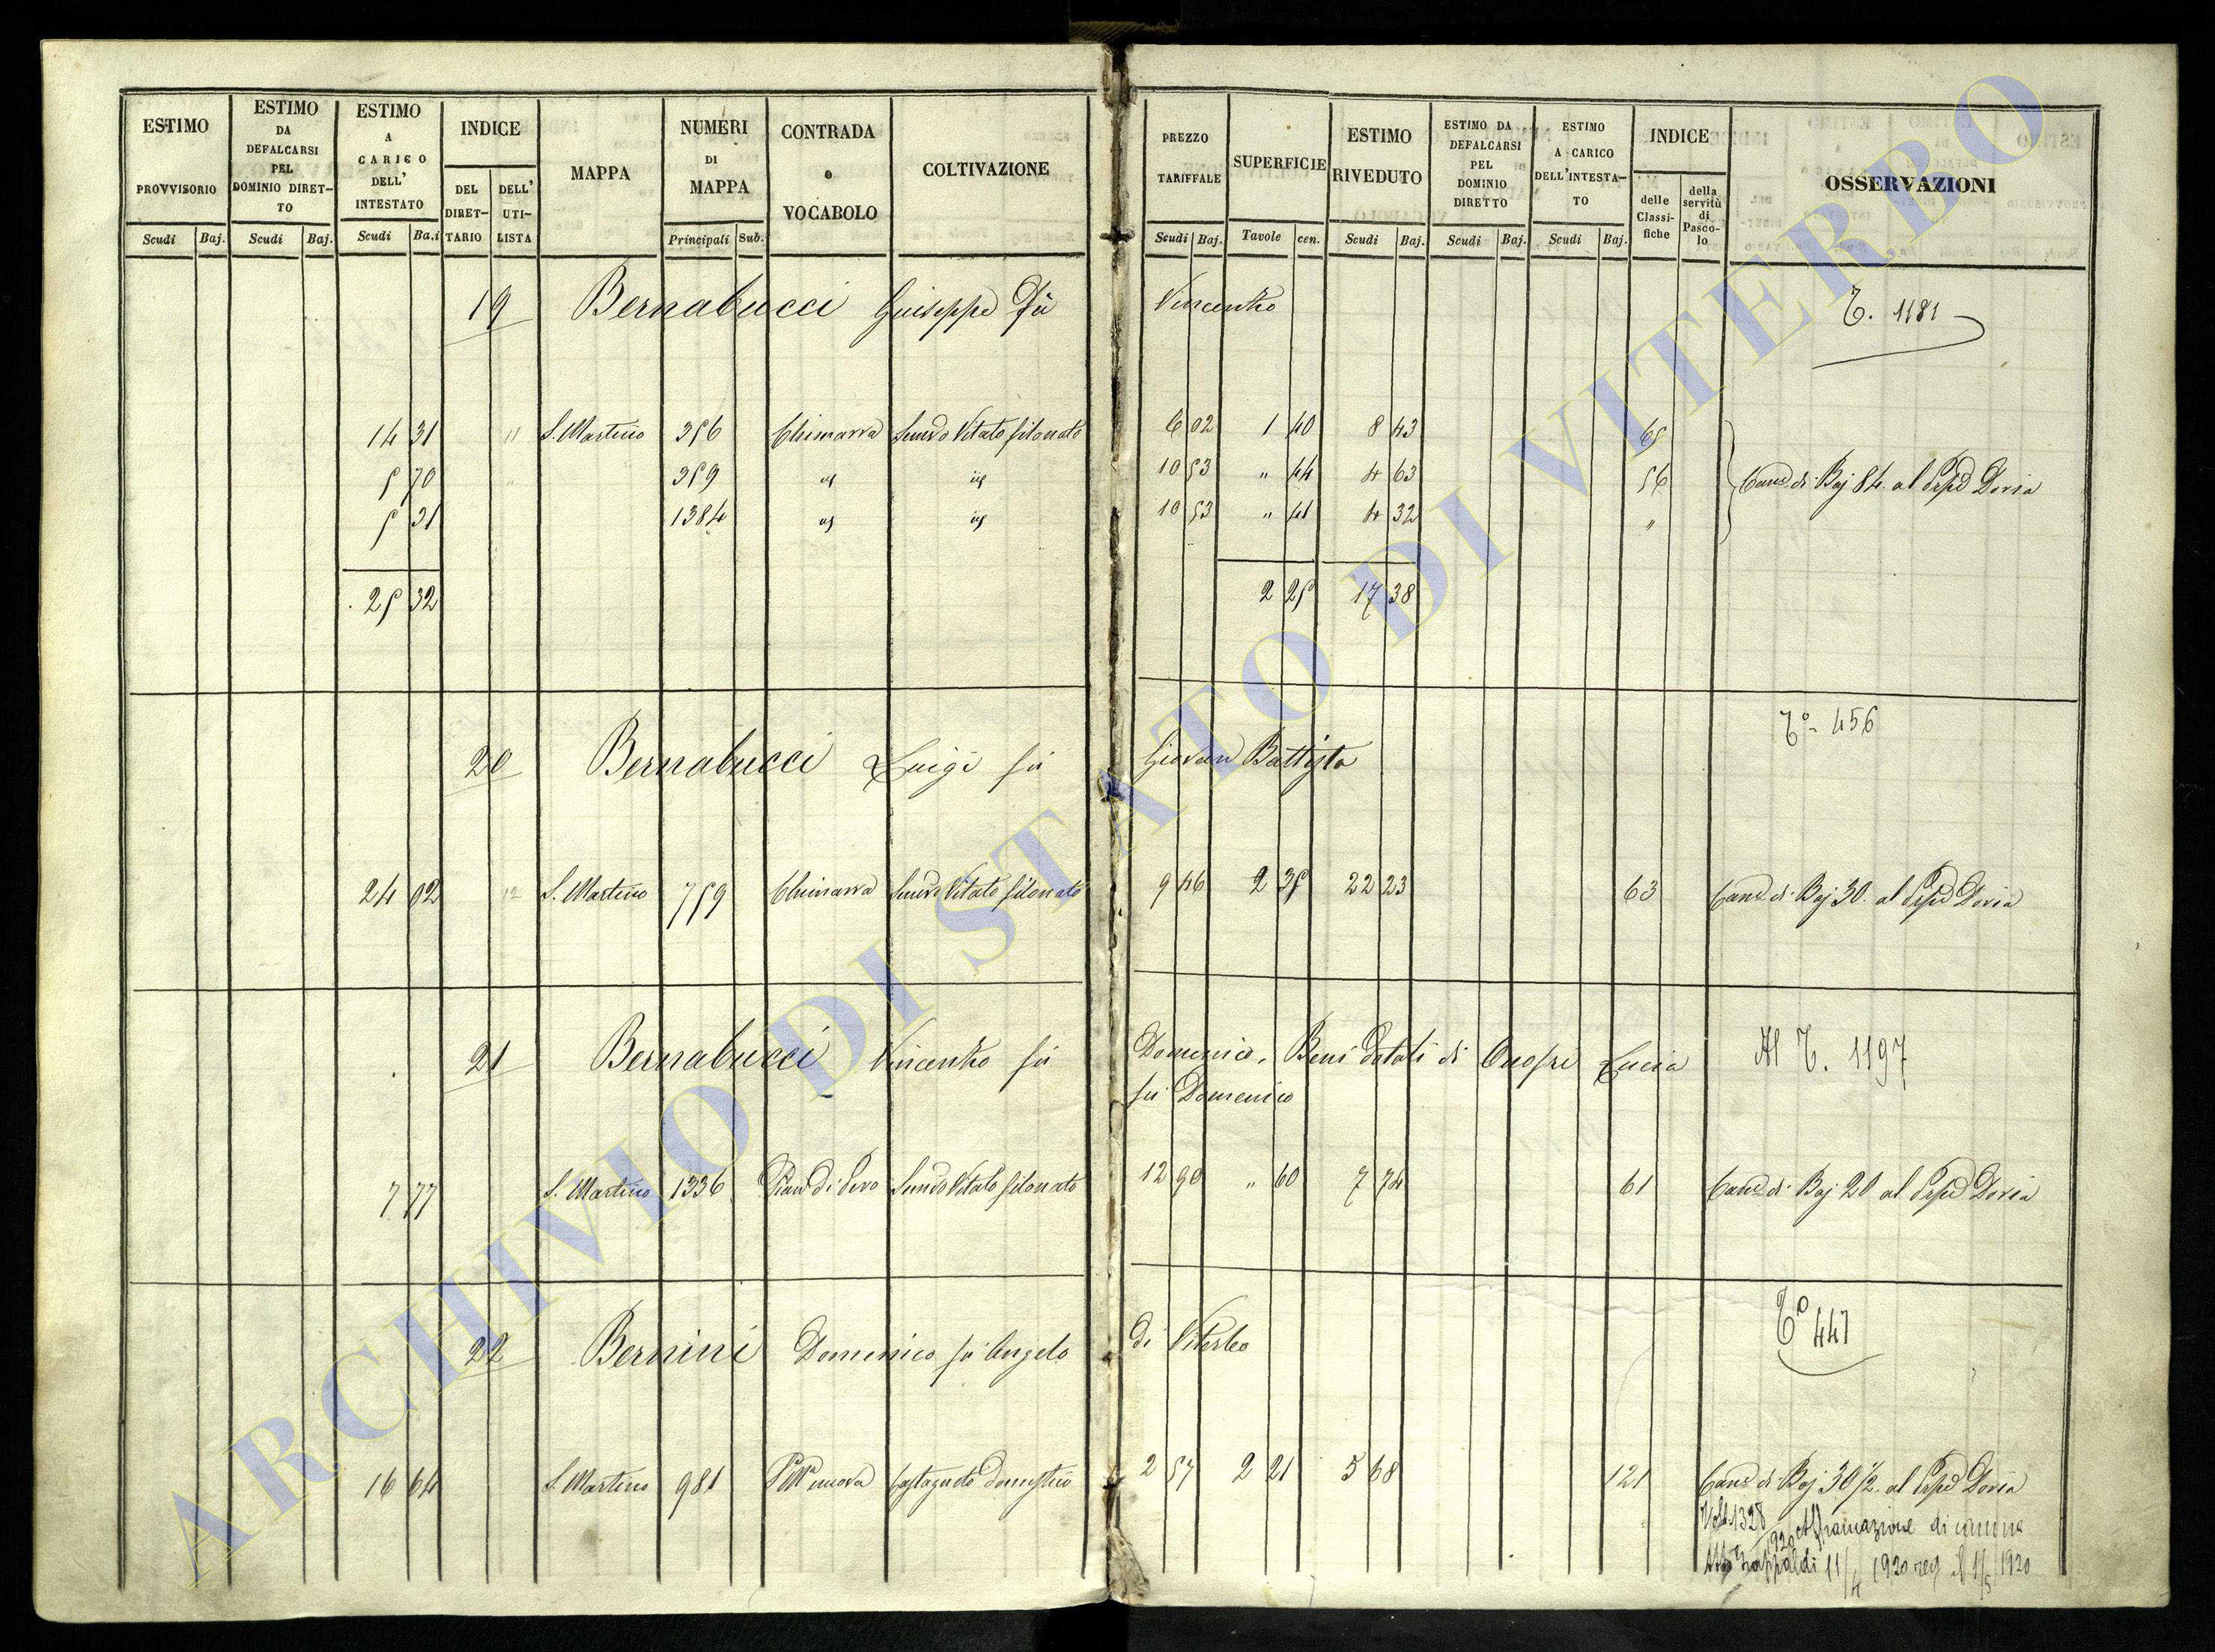 ESTIMO PROVVISORIO Scudi Baj.
ESTIMO DA DEFALCARSI PEL DOMINIO DIRET-TO Scudi Baj.
ESTIMO A CARICO DELL' INTESTATO Scudi Ba.i
INDICE DEL DIRET-TARIO DELL' UTI-LISTA
MAPPA
NUMERI DI MAPPA Principali Sub.
CONTRADA o VOCABOLO
COLTIVAZIONE
PREZZO TARIFFALE Scudi Baj.
SUPERFICIE Tavole cen.
ESTIMO RIVEDUTO Scudi Baj.
ESTIMO DA DEFALCARSI PEL DOMINIO DIRETTO Scudi Baj.
ESTIMO A CARICO DELL'INTESTA-TO Scudi Baj.
INDICE delle Classi-fiche della servitù di Pasco-lo
OSSERVAZIONI
19 Bernabucci Giuseppe fù Vincenzo T. 1181
14 31 " S. Martino 356 Chimarra Semvo Vitato filonato 6 02 1 40 8 43 65
5 70 " 359 id id 10 53 " 44 4 63 56 Cane di Baj 84. al Ppe Doria
5 31 1384 id id 10 53 " 41 4 32 "
25 32 2 25 17 38
20 Bernabucci Luigi fù Giovan Battista T° 456
24 02 S. Martino 759 Chimarra Semvo Vitato filonato 9 46 2 35 22 23 63 Cane di Baj 30. al Ppe Doria
21 Bernabucci Vincenzo fù Domenico, Beni dotali di Onofri Lucia Al T. 1197
fù Domenico
7 77 S. Martino 1336 Pian di Semvo Vitato filonato 12 90 " 60 7 74 61 Cane di Baj 20 al Ppe Doria
22 Bernini Domenico fù Angelo di Viterbo T° 447
16 64 S. Martino 981 nuova Castagneto domestico 2 57 2 21 5 68 121 Cane di Baj 30 1/2. al Ppe Doria
1328/1920 Affrancazione di canone
11/4 1920 reg il 1/5 1920
ARCHIVIO DI STATO DI VITERBO